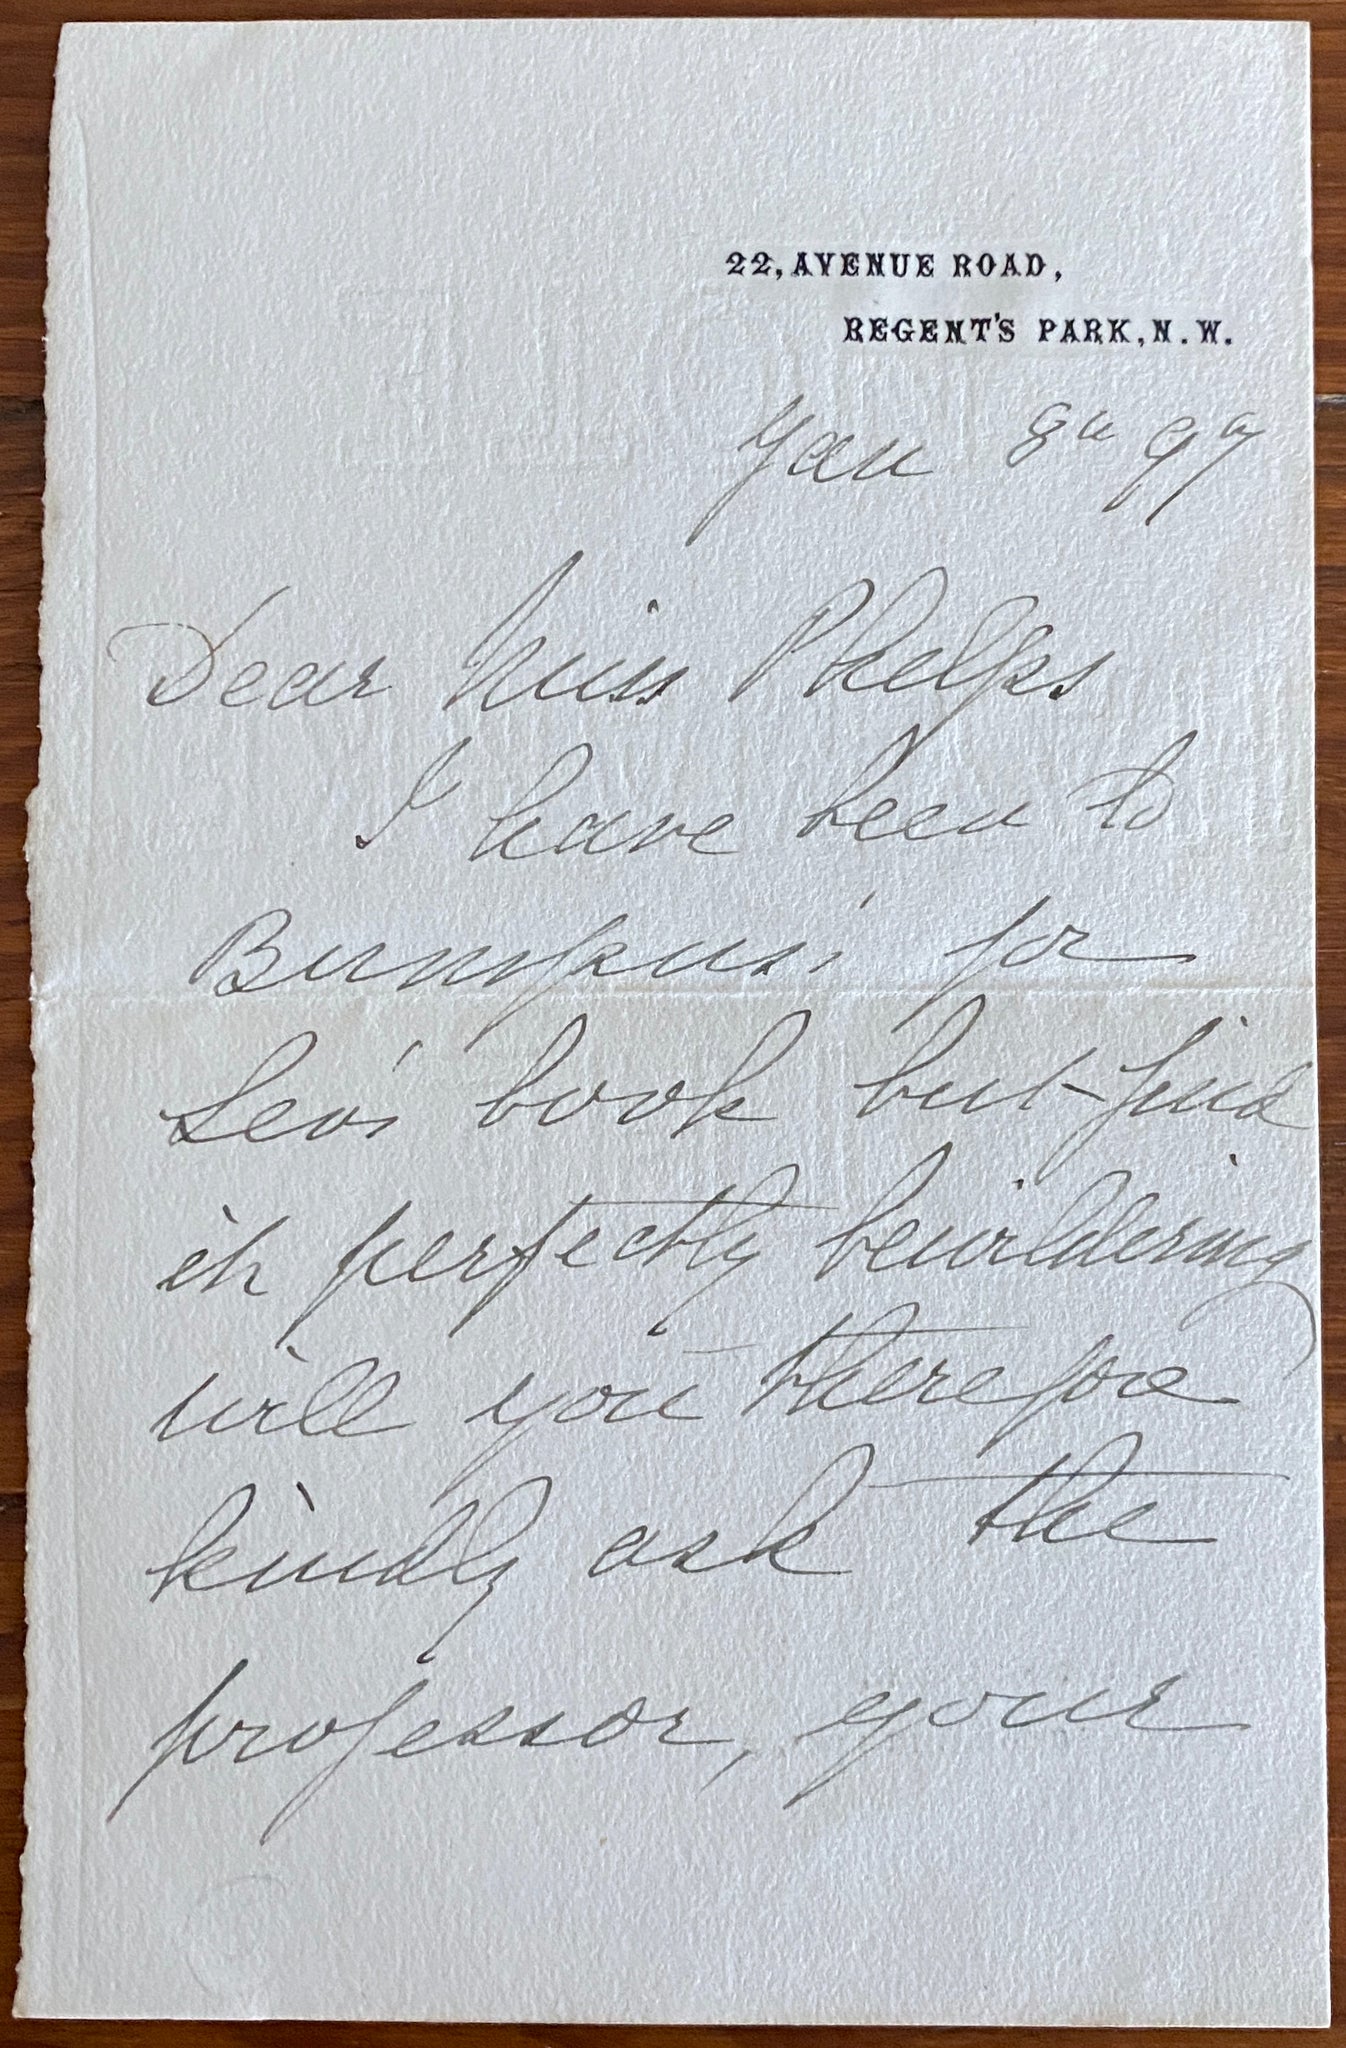 22, AVENUE ROAD,
REGENT'S PARK, N.W.
Jan 8th 97
Dear Miss Phelps
I have been to
Bumpus' for
Leo's book but find
it perfectly bewildering
will you therefore
kindly ask the
professor, your